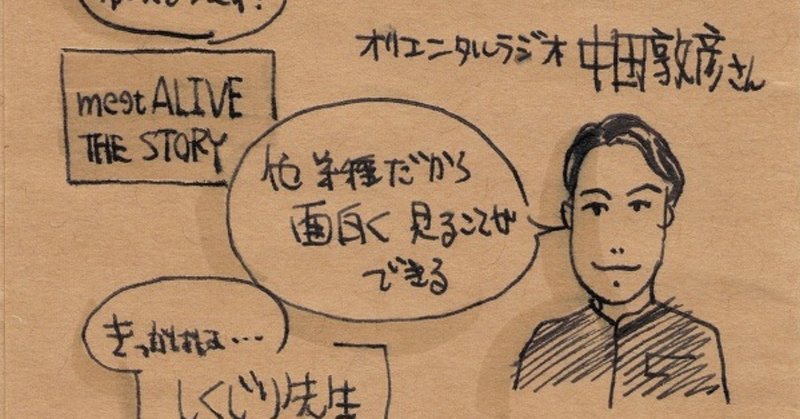 オリエンタルラジオ 中田敦彦さん
meet ALIVE
THE STORY
他業種だから
面白く 見ることが
できる
きっかけは…
しくじり先生